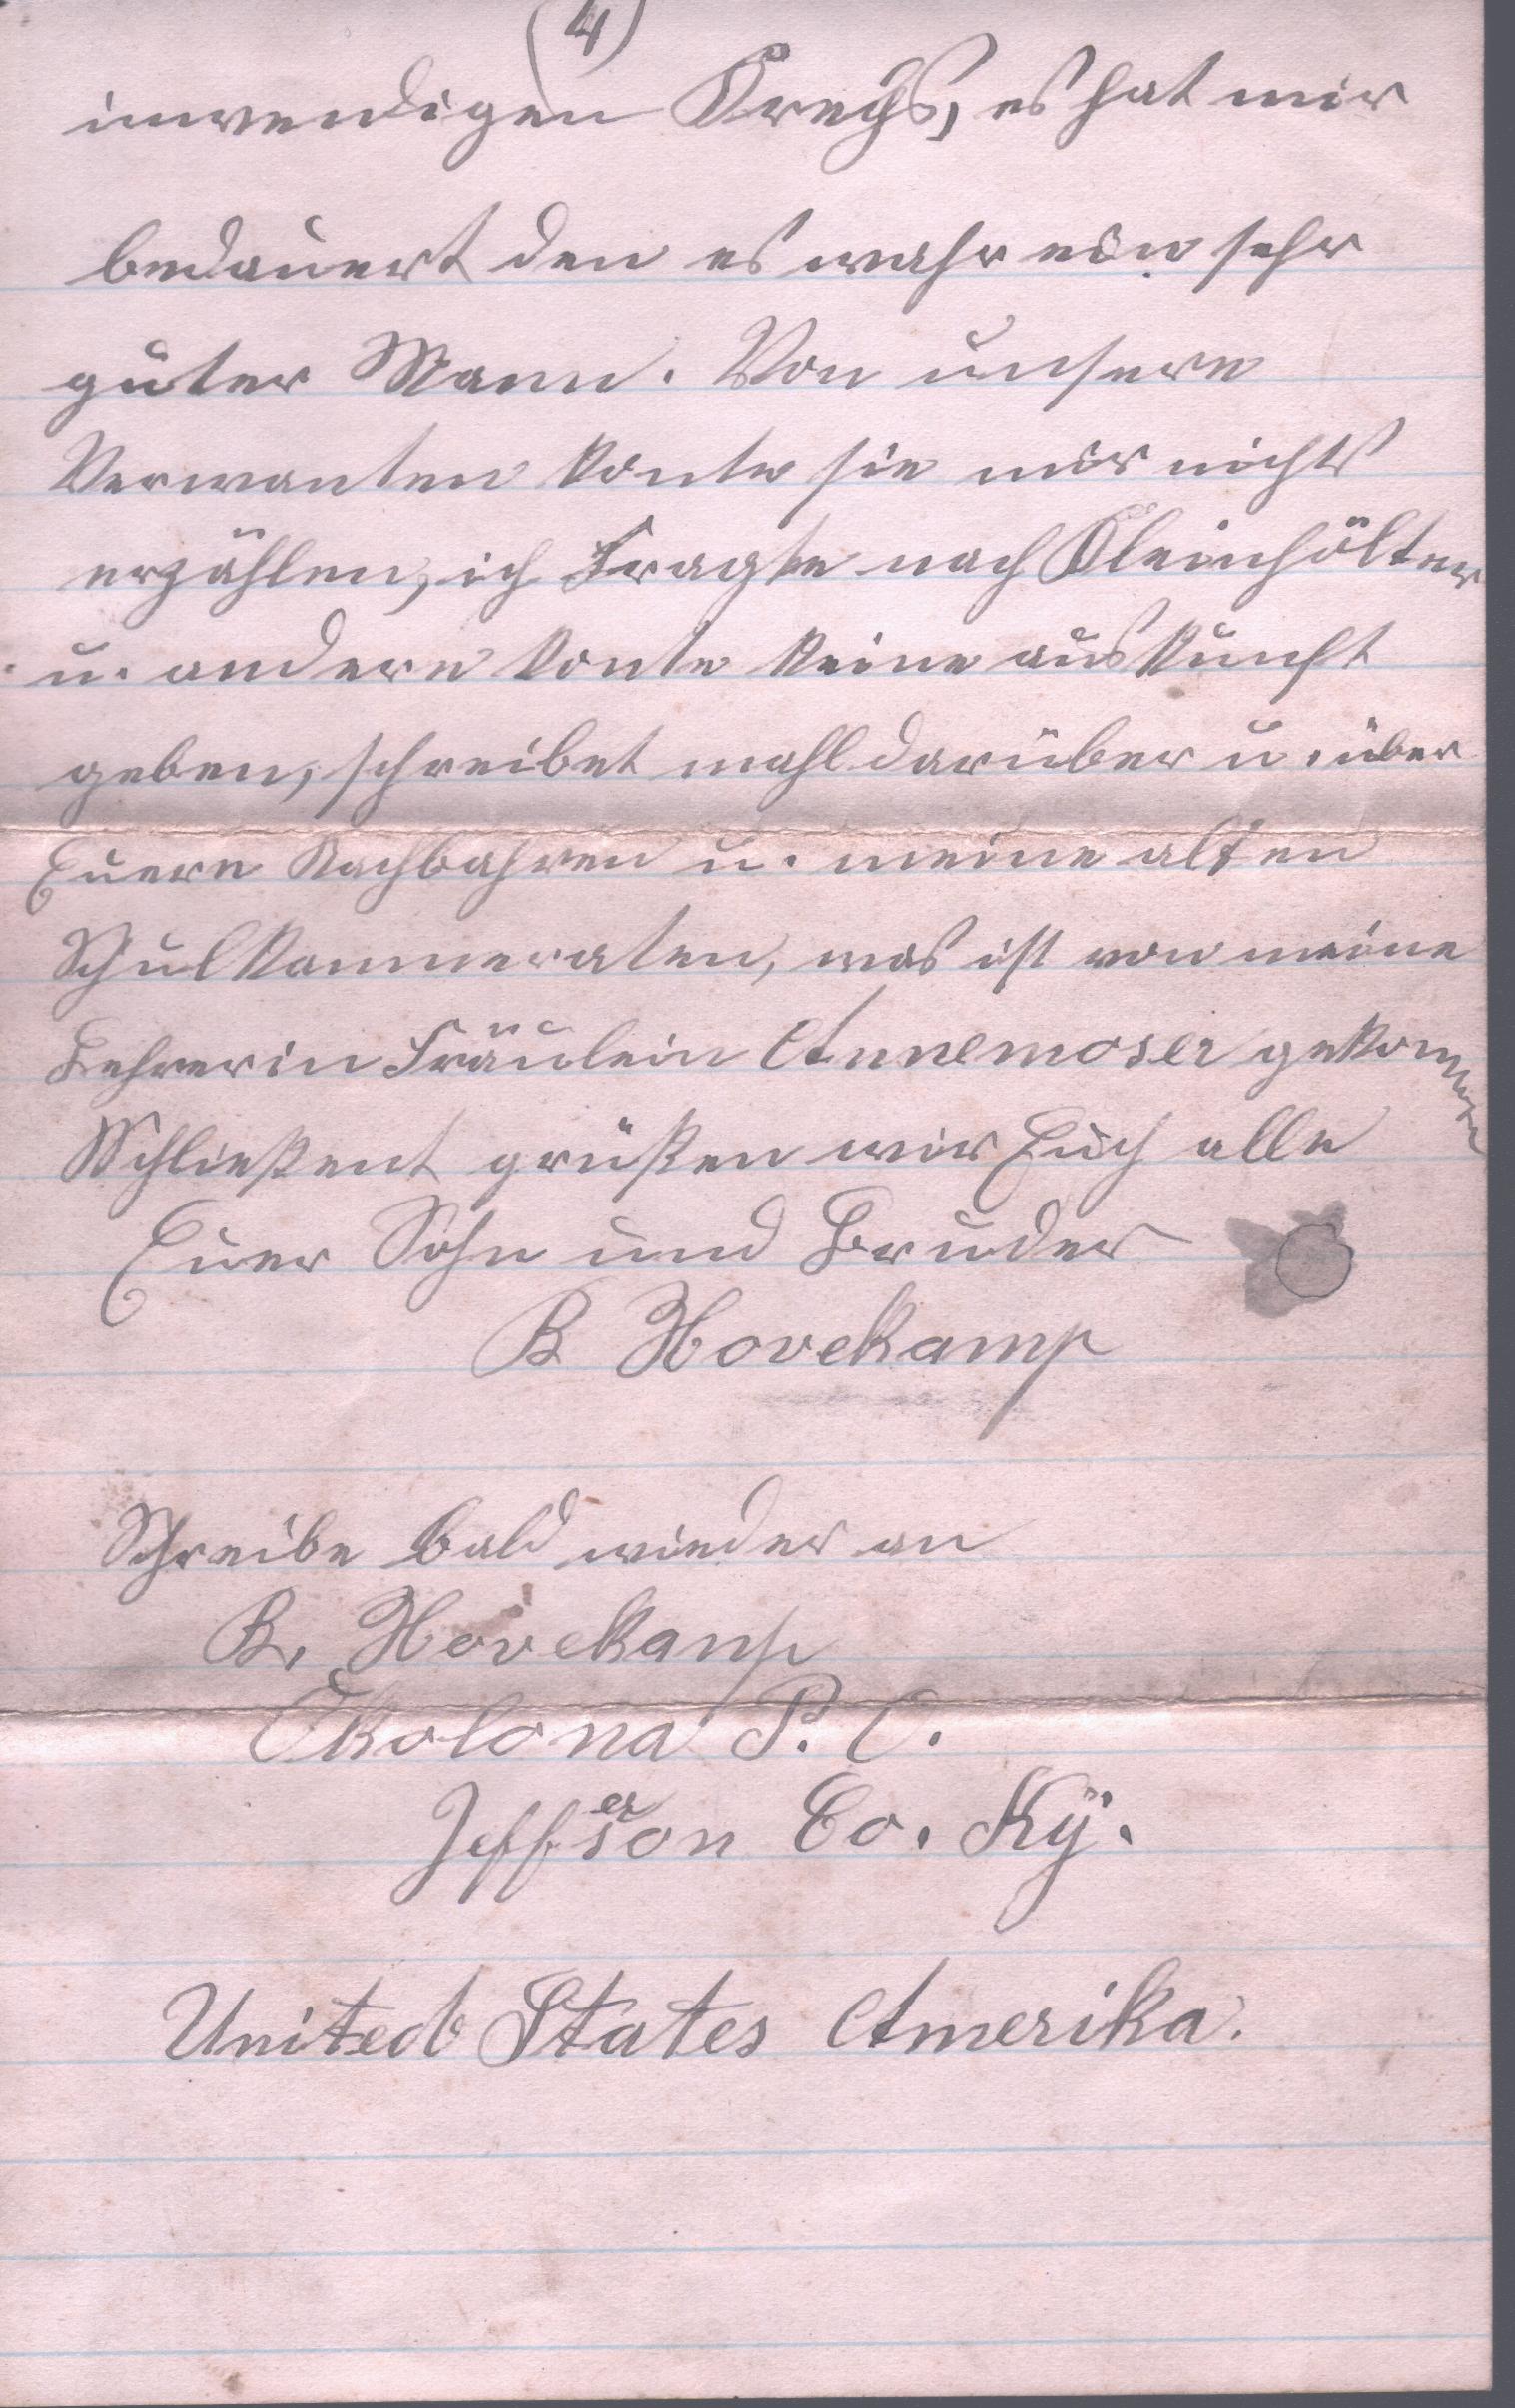 (4)
inwendigen Krebs, es hat mir
bedauert den es wahr ein sehr
guter Mann. Von unsere
Verwanten konte sie mir nichts
erzählen, ich Fragte nach Kleinhölter
u. andere konte keine auskunft
geben, schreibet mahl darüber u. über
Euere Nachbahren u. meine alten
Schulkammeraten, was ist von meine
Lehrerin Fräulein Annemoser gekommen
Schließent grüßen wir Euch alle
Euer Sohn und Bruder
B Hovekamp
Schreibe bald wieder an
B. Hovekamp
Okolona P. O.
Jefferson Co. Ky.
United States Amerika.